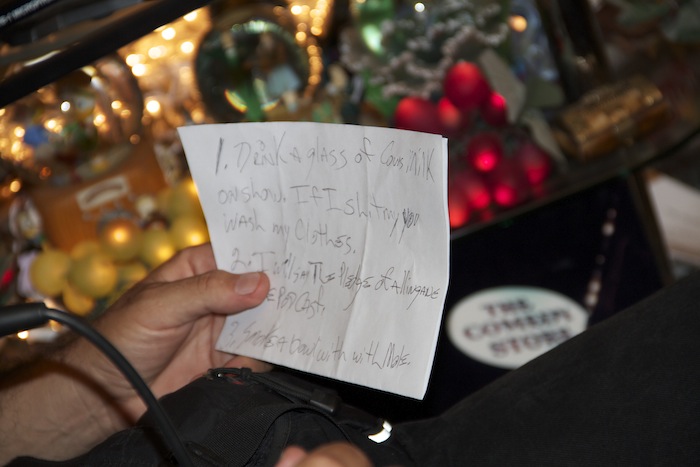 1. Drink a glass of Cows milk
on show. If I shit my you
wash my Clothes.
2. I will the Pledge of
Podcast.
Smoke a bowl with with Mole.
THE
COMEDY
STORE